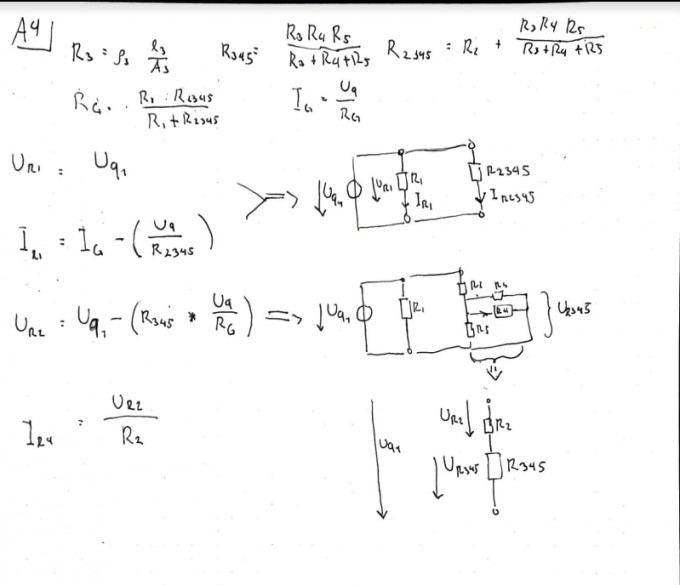 A4
R3 = ρ3 l3/A3   R345 = R3 R4 R5 / R3 + R4 + R5   R2345 = R2 + R3 R4 R5 / R3 + R4 + R5
RG = R1 · R2345 / R1 + R2345   IG = Uq / RG
UR1 = Uq1
Uq1 UR1 R1 IR1 R2345 IR2345
IR1 = IG - (Uq / R2345)
UR2 = Uq1 - (R345 * Uq / RG) => Uq1 R1 R2 R4 R5 U2345
IR4 = UR2 / R2
Uq1 UR2 R2
UR345 R345